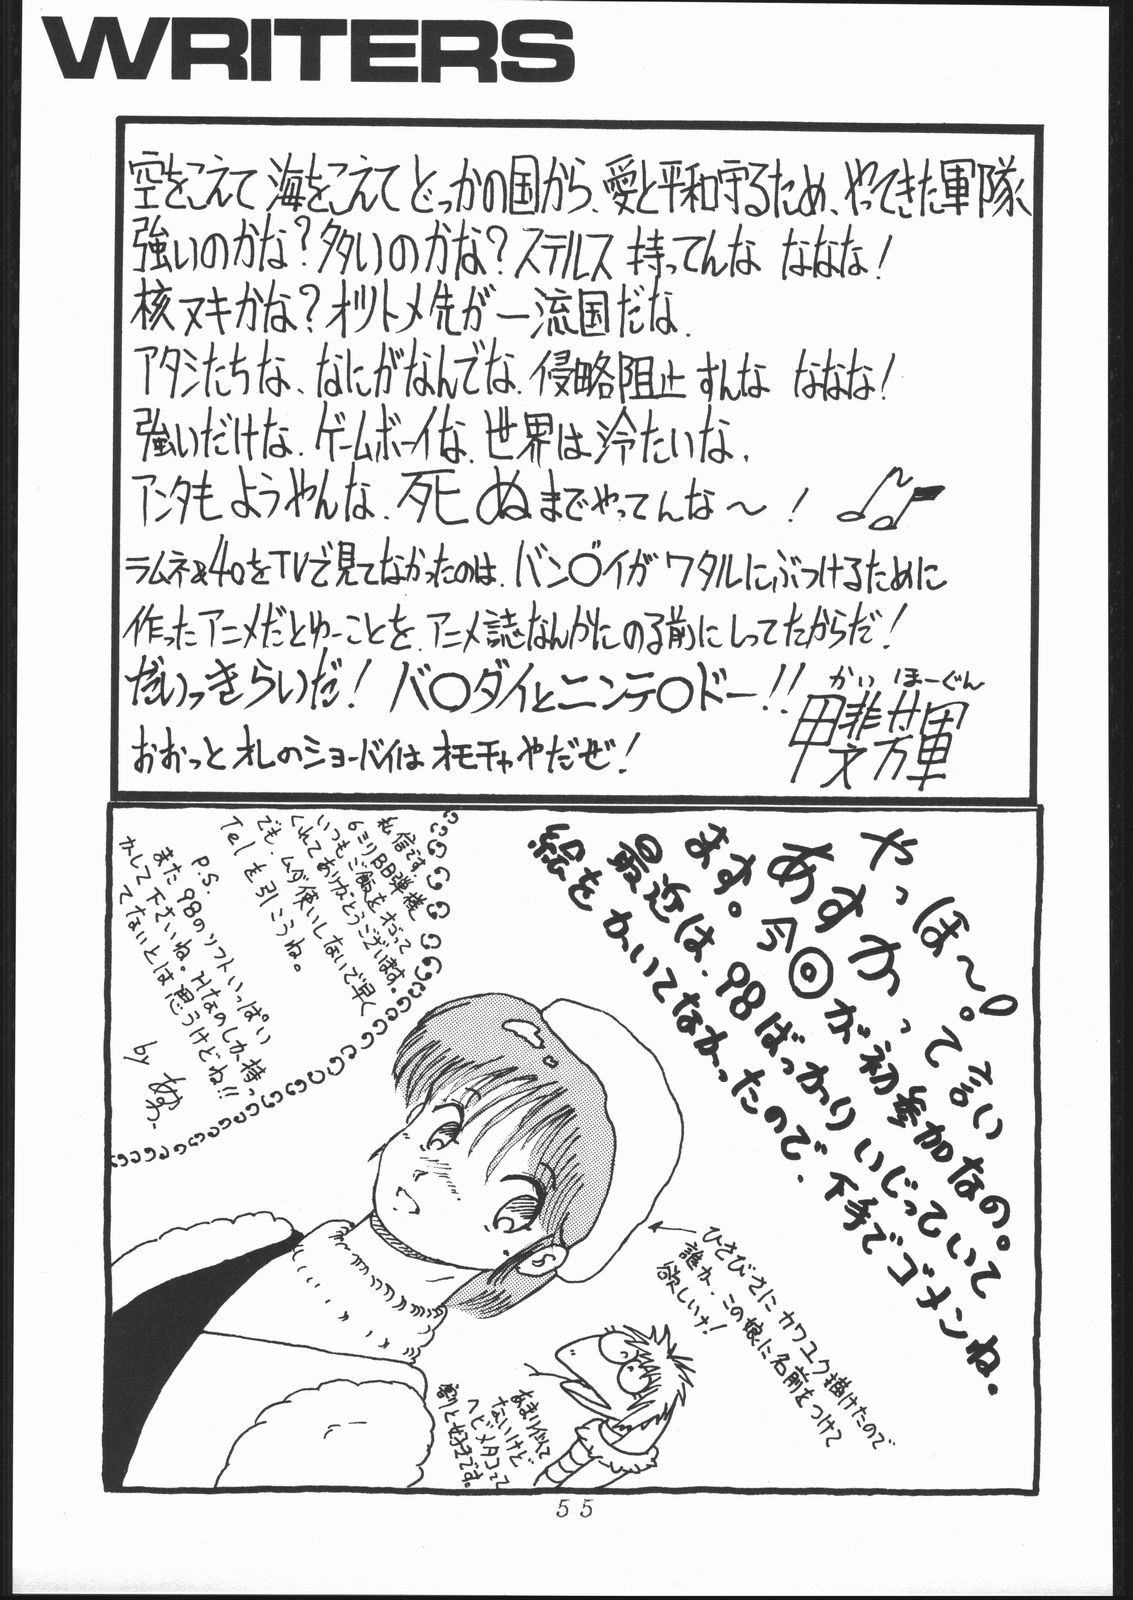 WRITERS
空をこえて 海をこえて どっかの国から、愛と平和守るため、やってきた軍隊
強いのかな?多いのかな?ステルス 持ってんな ななな!
核ヌキかな?オツトメ先が一流国だな.
アタシたちな、なにがなんでな.侵略阻止すんな ななな!
強いだけな.ゲームボーイな.世界は冷たいな.
アンタも ようやんな.死ぬまでやってんな〜!
ラムネ&40をTVで見てなかったのは、バン○イが ワタルにぶつけるために
作ったアニメだとゆーことを、アニメ誌なんかにのる前にしってたからだ!
だいっきらいだ! バ○ダイとニンテ○ドー!!
おおっと オレのショーバイは オモチャやだぜ!
かい ほーぐん
甲斐芳軍
やっほ〜!
あすかって言い
ます。今◎が初参加なの。
最近は、98ばっかりいじっていて
絵をかいてなかったので、下手でゴメンね.
私信です.
6ミリBB弾様
いつもご飯をおごって
くれてありがとうございます。
でも、ムダ使いしないで早く
Telを引こうね。
P.S.
また98のソフトいっぱい
かして下さいね。Hなのしか持っ
てないとは思うけどね!!
by あすか
ひさびさに カワユク描けたので
誰か、この娘に名前をつけて
欲しいナ!
あまり似て
ないけど
ヘビメタコって
割と好きです。
55